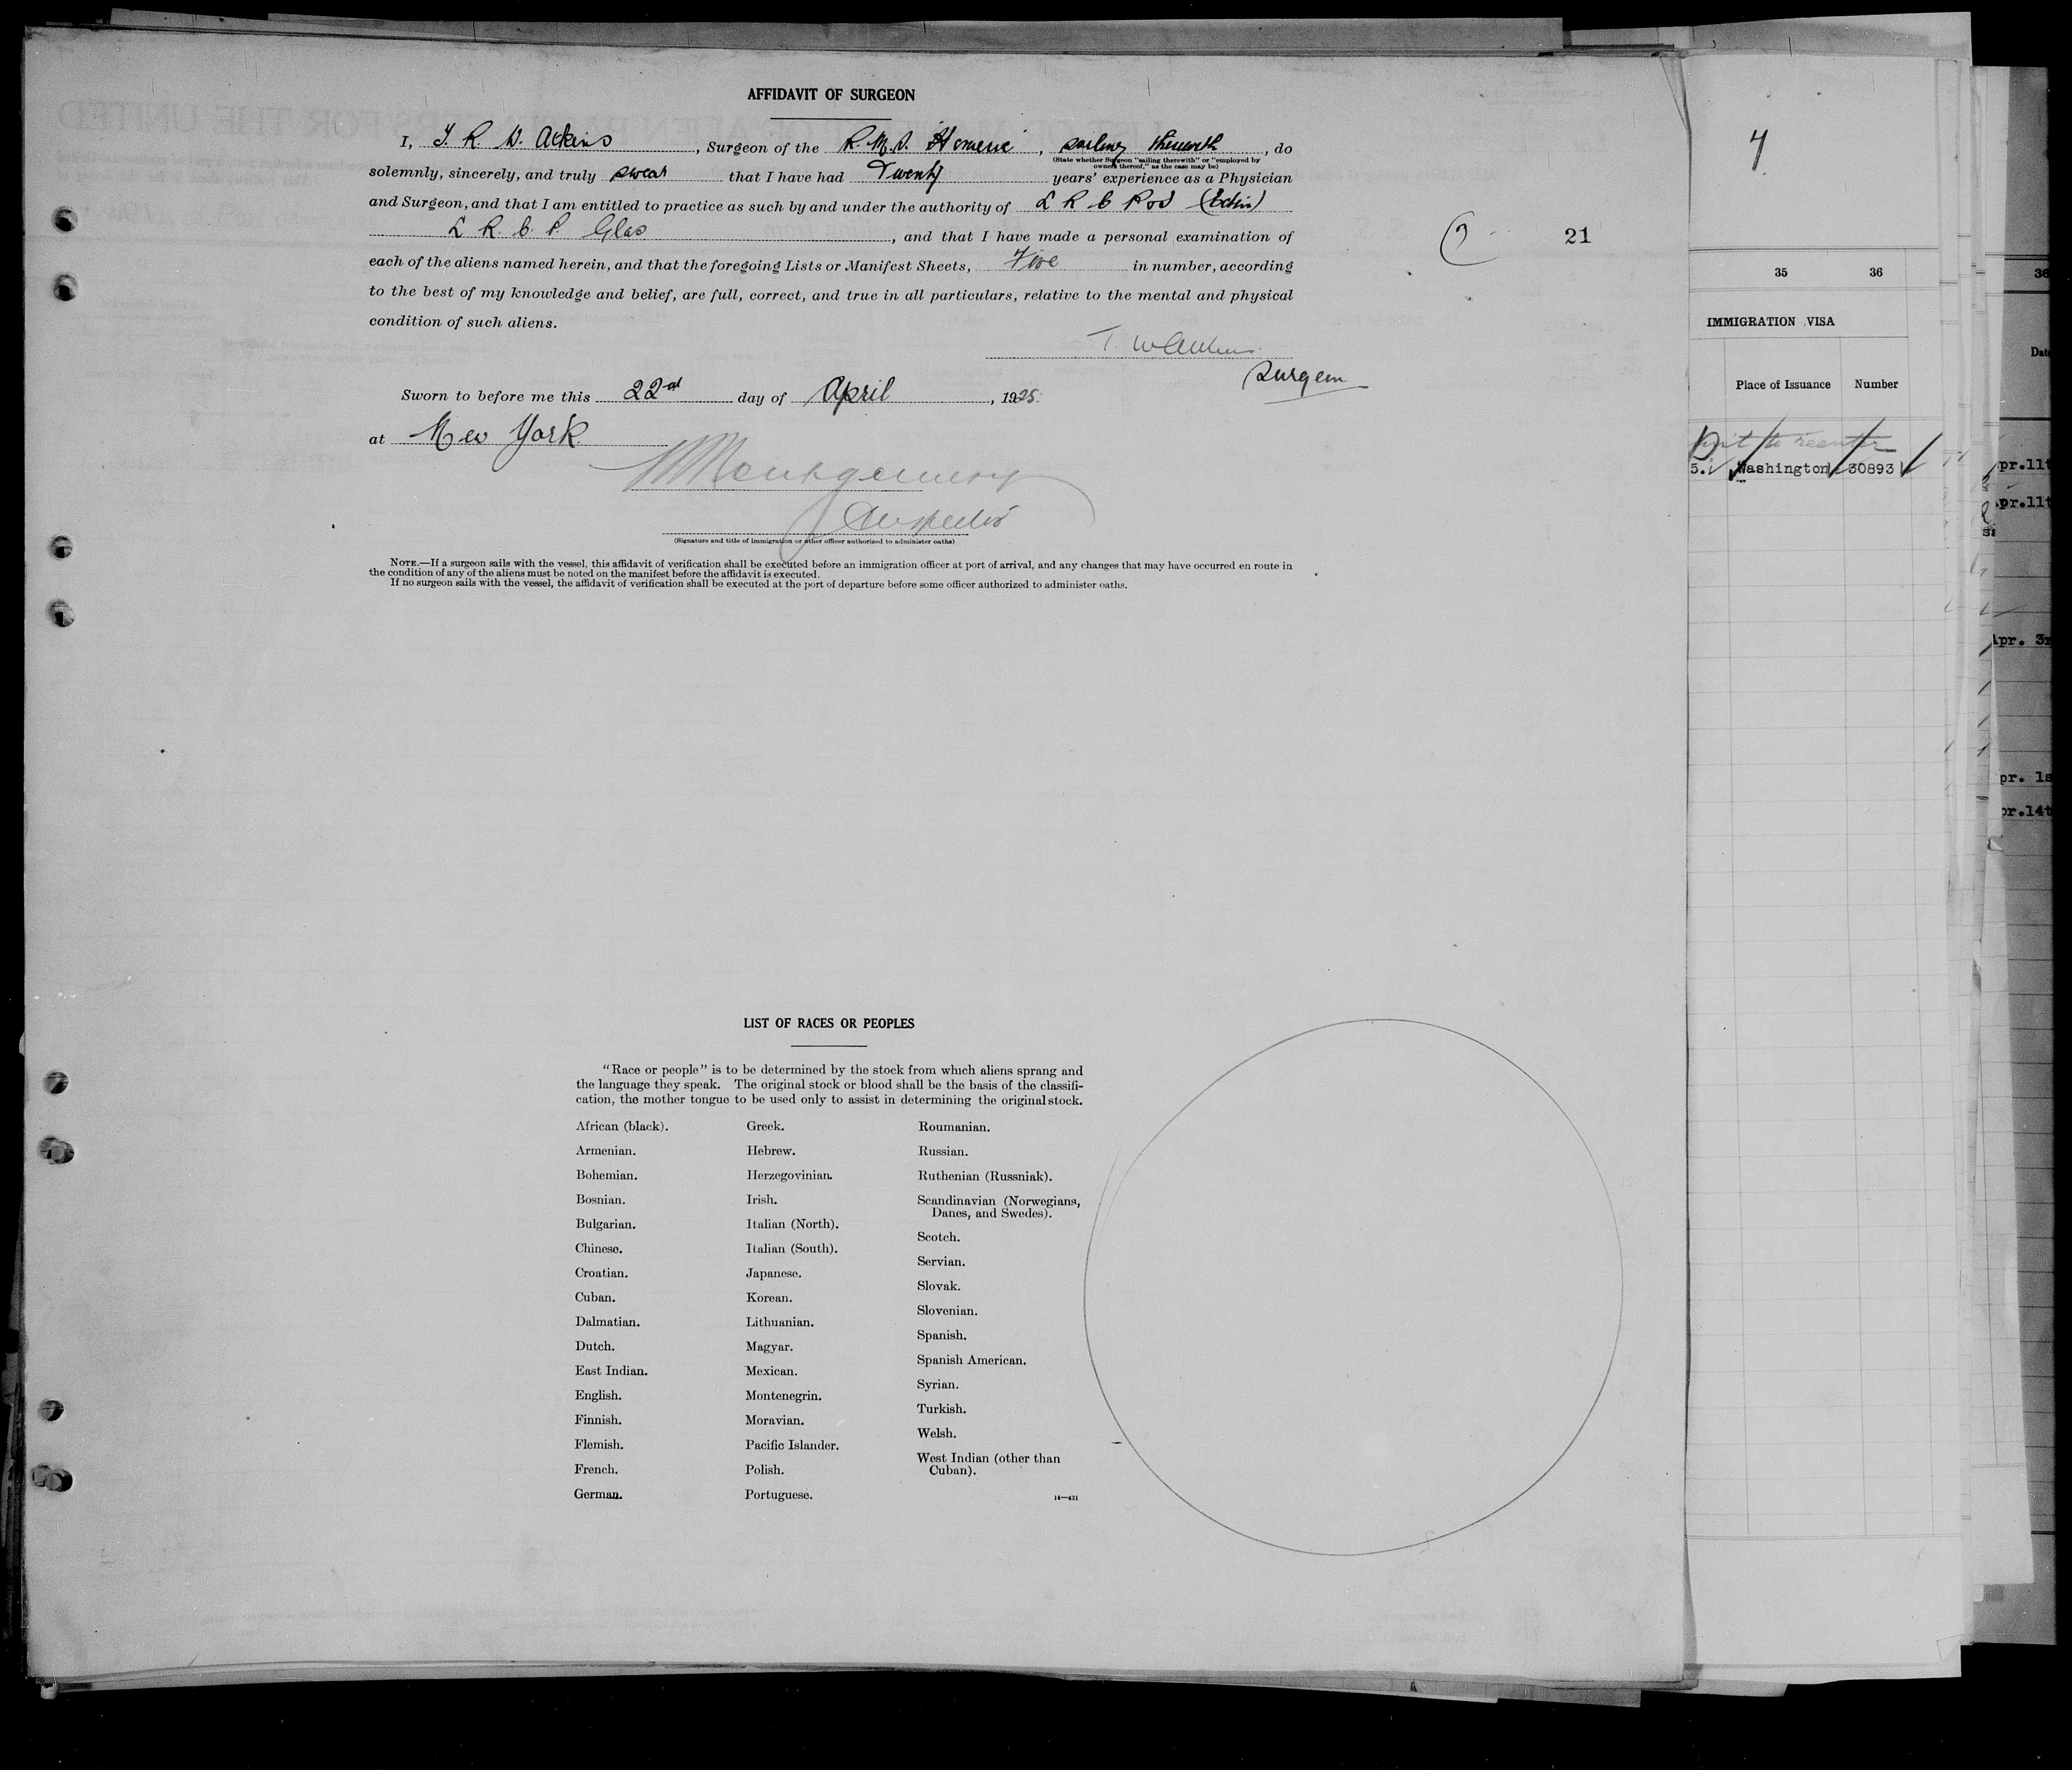 AFFIDAVIT OF SURGEON
I, T. R. W. Atkins, Surgeon of the R.M.S. "Homeric", sailing therewith, do
(State whether Surgeon "sailing therewith" or "employed by
owners thereof," as the case may be)
solemnly, sincerely, and truly swear that I have had Twenty years' experience as a Physician
and Surgeon, and that I am entitled to practice as such by and under the authority of L R C P & S (Edin)
L R. C. P. Glas, and that I have made a personal examination of
each of the aliens named herein, and that the foregoing Lists or Manifest Sheets, Five in number, according
to the best of my knowledge and belief, are full, correct, and true in all particulars, relative to the mental and physical
condition of such aliens.
T. W Atkins
Surgeon
Sworn to before me this 22nd day of April, 1925.
at New York
Montgomery
Inspector
(Signature and title of immigration or other officer authorized to administer oaths)
NOTE.—If a surgeon sails with the vessel, this affidavit of verification shall be executed before an immigration officer at port of arrival, and any changes that may have occurred en route in
the condition of any of the aliens must be noted on the manifest before the affidavit is executed.
If no surgeon sails with the vessel, the affidavit of verification shall be executed at the port of departure before some officer authorized to administer oaths.
21
LIST OF RACES OR PEOPLES
"Race or people" is to be determined by the stock from which aliens sprang and
the language they speak. The original stock or blood shall be the basis of the classifi-
cation, the mother tongue to be used only to assist in determining the original stock.
African (black).
Armenian.
Bohemian.
Bosnian.
Bulgarian.
Chinese.
Croatian.
Cuban.
Dalmatian.
Dutch.
East Indian.
English.
Finnish.
Flemish.
French.
German.
Greek.
Hebrew.
Herzegovinian.
Irish.
Italian (North).
Italian (South).
Japanese.
Korean.
Lithuanian.
Magyar.
Mexican.
Montenegrin.
Moravian.
Pacific Islander.
Polish.
Portuguese.
Roumanian.
Russian.
Ruthenian (Russniak).
Scandinavian (Norwegians,
Danes, and Swedes).
Scotch.
Servian.
Slovak.
Slovenian.
Spanish.
Spanish American.
Syrian.
Turkish.
Welsh.
West Indian (other than
Cuban).
14—431
35 36
IMMIGRATION VISA
Place of Issuance Number
to reenter
5. Washington 30893
36
Dat
pr.11t
pr.11t
Apr. 3r
pr. 1s
pr.14t